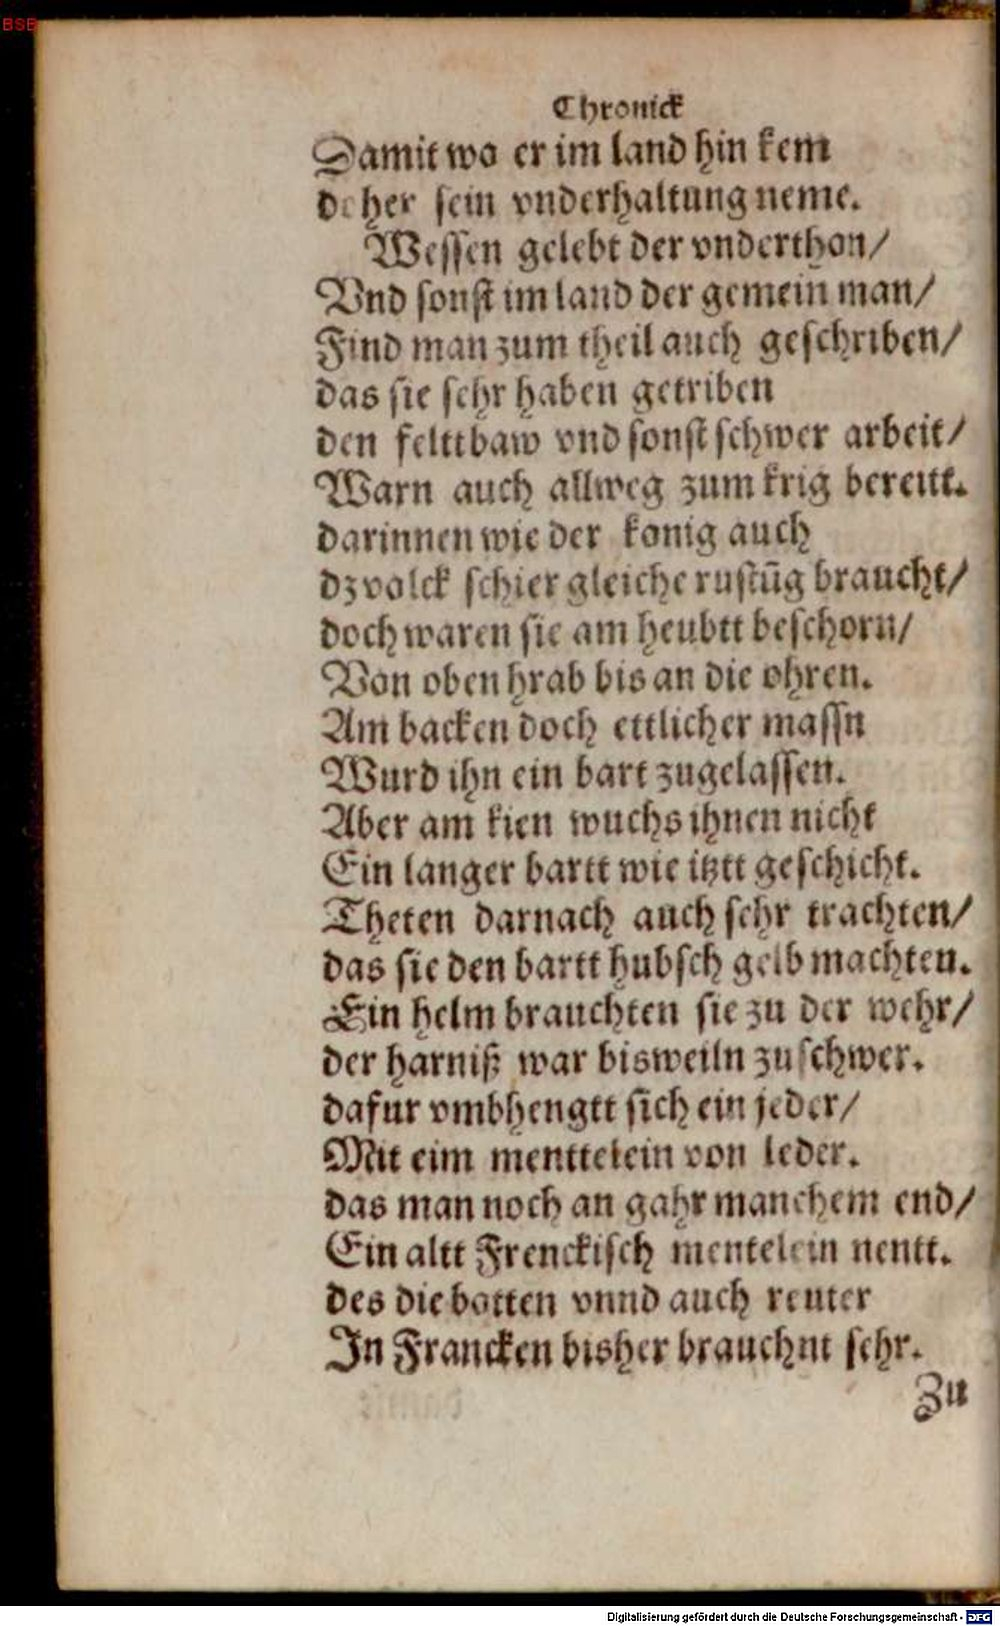 BSB
Chronick
Damit wo er im land hin kem
daher sein vnderhaltung neme.
Wessen gelebt der vnderthon/
Vnd sonst im land der gemein man/
Find man zum theil auch geschriben/
das sie sehr haben getriben
den felttbaw vnd sonst schwer arbeit/
Warn auch allweg zum krig bereitt.
darinnen wie der konig auch
dz volck schier gleiche rustūg braucht/
doch waren sie am heubtt beschorn/
Von oben hrab bis an die ohren.
Am backen doch ettlicher massn
Wurd ihn ein bart zugelassen.
Aber am kien wuchs ihnen nicht
Ein langer bartt wie itztt geschicht.
Theten darnach auch sehr trachten/
das sie den bartt hubsch gelb machten.
Ein helm brauchten sie zu der wehr/
der harniß war bisweiln zu schwer.
dafur vmbhengtt sich ein jeder/
Mit eim menttelein von leder.
das man noch an gahr manchem end/
Ein altt Frenckisch mentelein nentt.
des die botten vnnd auch reuter
In Francken bisher brauchnt sehr.
Zu
Digitalisierung gefördert durch die Deutsche Forschungsgemeinschaft - DFG